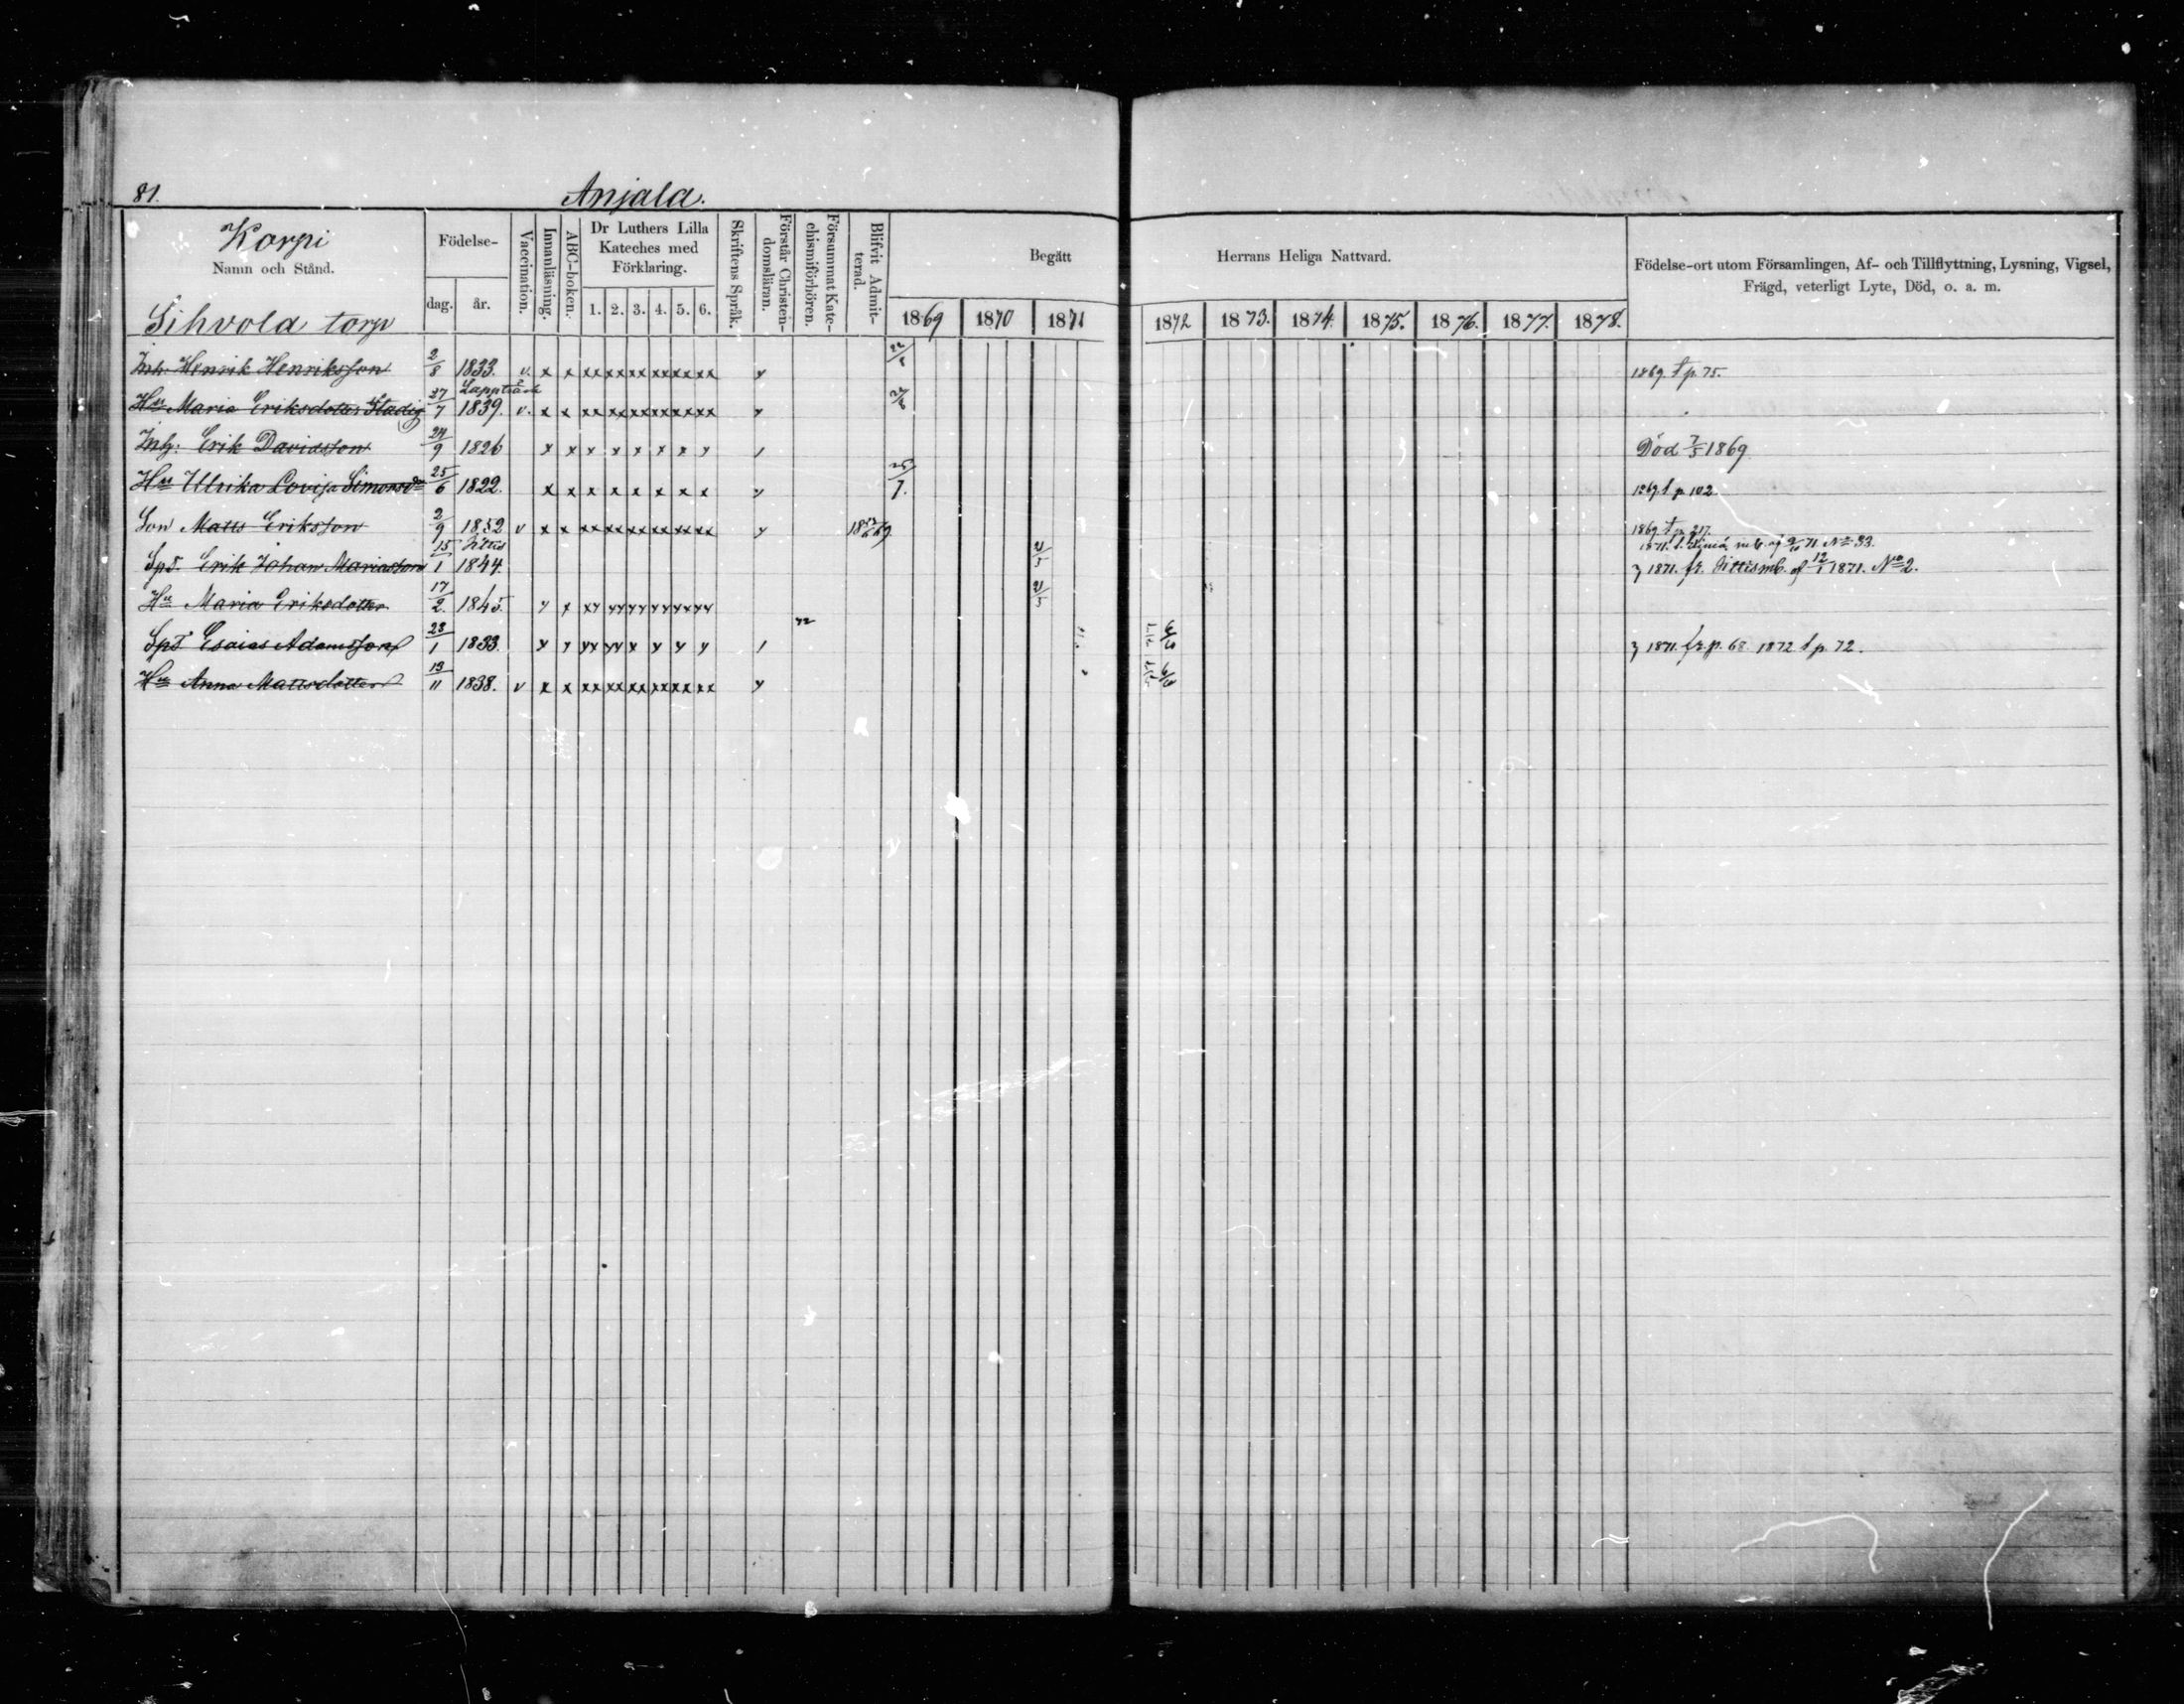 81. Anjala.
Korpi
Namn och Stånd.
Sihvola torp
Födelse-
dag. år.
Vaccination.
Innanläsning.
ABC-boken.
Dr Luthers Lilla
Kateches med
Förklaring.
1. 2. 3. 4. 5. 6.
Skriftens Språk.
Förstår Christen-
domsläran.
Försummat Kate-
chismiförhören.
Blifvit Admit-
terad.
Begått Herrans Heliga Nattvard.
1869 1870 1871 1872 1873. 1874. 1875. 1876. 1877. 1878.
Födelse-ort utom Församlingen, Af- och Tillflyttning, Lysning, Vigsel,
Frägd, veterligt Lyte, Död, o. a. m.
Inh. Henrik Henriksson 2/8 1833. v. x x xx xx xx xx xx xx y 1869. t p. 75.
Lappträsk
Hu Maria Eriksdotter Stadig 27/7 1839. v. x x xx xx xx xx xx xx y
Inh. Erik Davidsson 24/9 1826 x x x x x x x x Död 7/5 1869
Hu Ulrika Lovisa Simonsdr 25/6 1822. x x x x x x x x y 25/7. 1869 t p. 102
Son Matts Eriksson 2/9 1852 v x x xx xx xx xx xx xx y 1869 t p. 217.
Sps. Erik Johan Mariasson 15/1 1844. 21/5 1871. fr. Sittis mb. af 12/1 1871. No 2.
Hu Maria Eriksdotter 17/2 1845. y x xy yy yy yy yy yy 21/5
Sps Esaias Adamsson 23/1 1833. 72 1871. fr. p. 68. 1872 t p. 72.
Hu Anna Mattsdotter 13/11 1838. v x x xx xx xx xx xx xx y